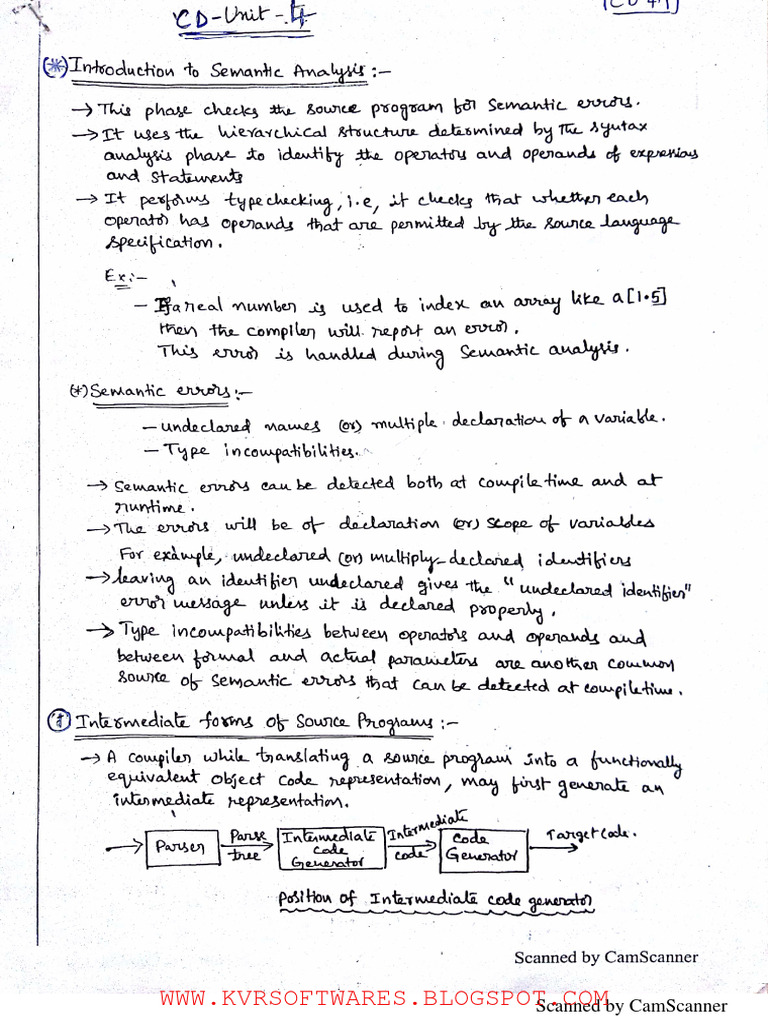 CD-Unit-4
(*) Introduction to Semantic Analysis:-
→ This phase checks the source program for semantic errors.
→ It uses the hierarchical structure determined by the syntax
analysis phase to identify the operators and operands of expressions
and statements
→ It performs typechecking, i.e, it checks that whether each
operator has operands that are permitted by the source language
specification.
Ex:-
- If a real number is used to index an array like a[1.5]
then the compiler will report an error.
This error is handled during semantic analysis.
(*) Semantic errors:-
- undeclared names (or) multiple declaration of a variable.
- Type incompatibilities.
→ Semantic errors can be detected both at compiletime and at
runtime.
→ The errors will be of declaration (or) scope of variables
For example, undeclared (or) multiply-declared identifiers
→ leaving an identifier undeclared gives the "undeclared identifier"
error message unless it is declared properly.
→ Type incompatibilities between operators and operands and
between formal and actual parameters are another common
source of semantic errors that can be detected at compiletime.
(1) Intermediate forms of Source Programs:-
→ A compiler while translating a source program into a functionally
equivalent object code representation, may first generate an
intermediate representation.
→ Parser → Parse tree → Intermediate code Generator → Intermediate code → Code Generator → Target code.
Position of Intermediate code generator
Scanned by CamScanner
WWW.KVRSOFTWARES.BLOGSPOT.COM
Scanned by CamScanner